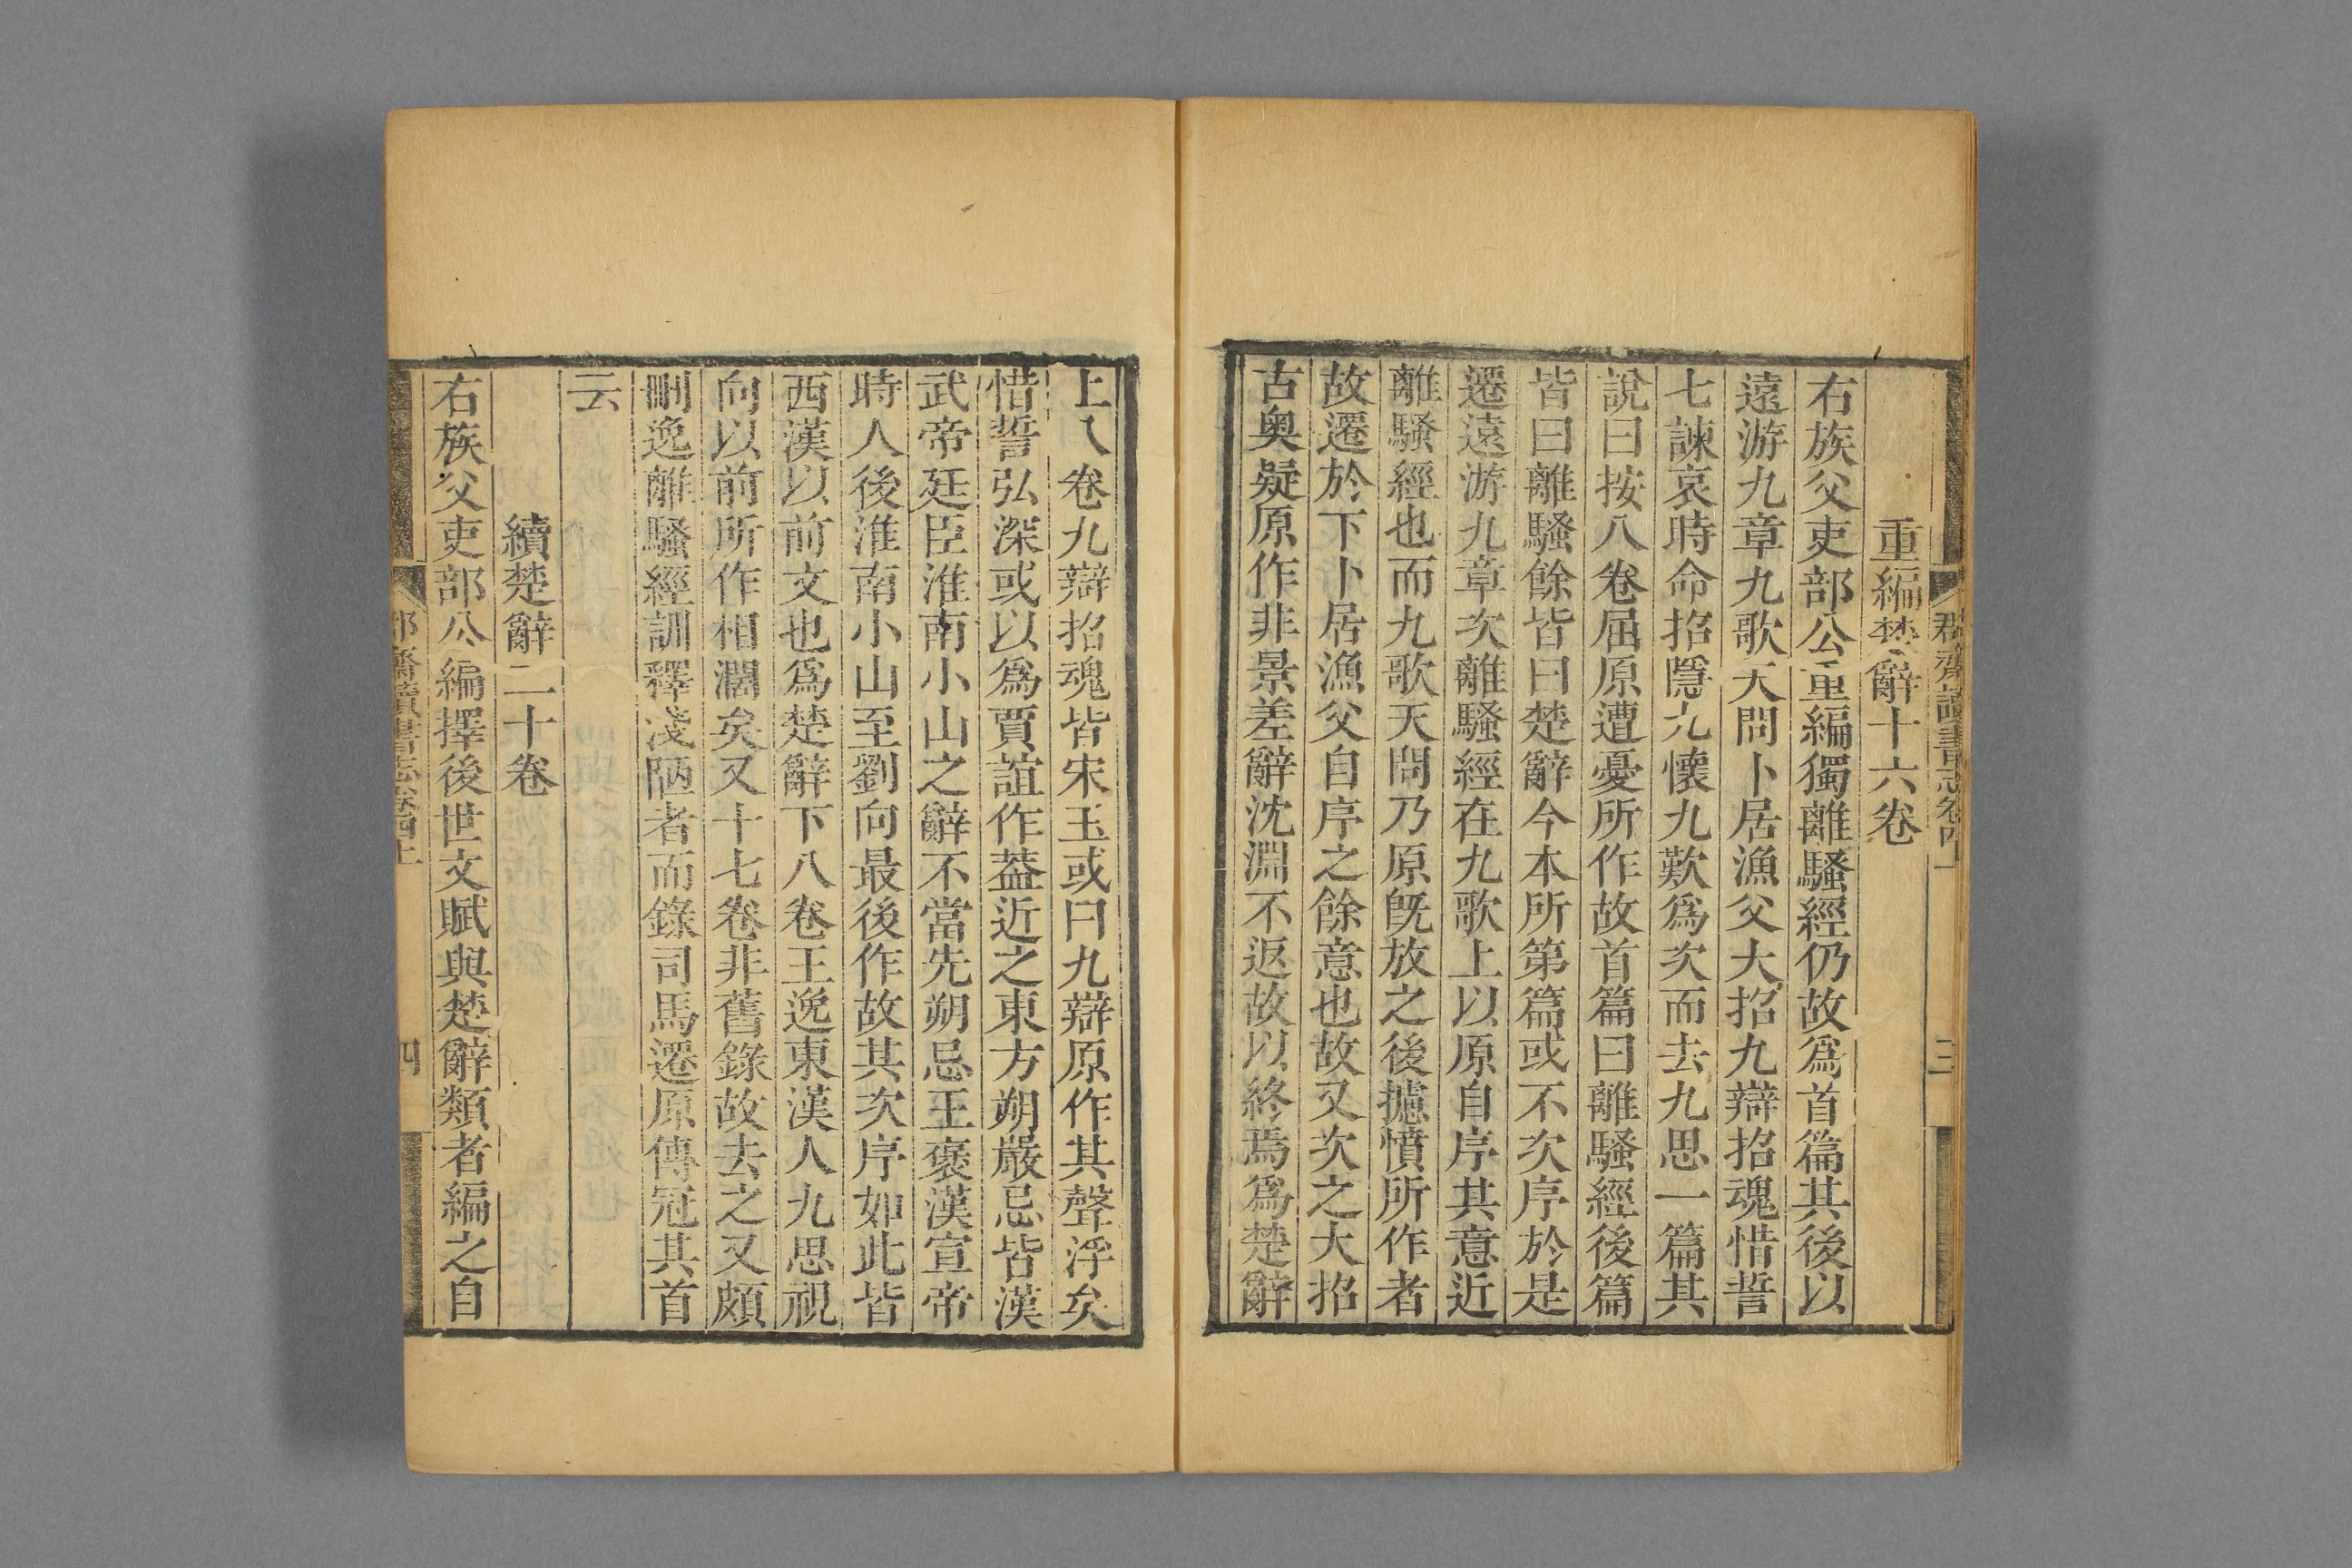 重編楚辭十六卷
右族父吏部公重編獨離騷經仍故爲首篇其後以
遠游九章九歌天問卜居漁父大招九辯招魂惜誓
七諫哀時命招隱九懷九歎爲次而去九思一篇其
說曰按八卷屈原遭憂所作故首篇曰離騷經後篇
皆曰離騷餘皆曰楚辭今本所第篇或不次序於是
遷遠游九章次離騷經在九歌上以原自序其意近
離騷經也而九歌天問乃原旣放之後攄憤所作者
故遷於下卜居漁父自序之餘意也故又次之大招
古奥疑原作非景差辭沈淵不返故以終焉爲楚辭
上八卷九辯招魂皆宋玉或曰九辯原作其聲浮矣
惜誓弘深或以爲賈誼作葢近之東方朔嚴忌皆漢
武帝廷臣淮南小山之辭不當先朔忌王褒漢宣帝
時人後淮南小山至劉向最後作故其次序如此皆
西漢以前文也爲楚辭下八卷王逸東漢人九思視
向以前所作相濶矣又十七卷非舊錄故去之又頗
刪逸離騷經訓釋淺陋者而錄司馬遷原傳冠其首
云
續楚辭二十卷
右族父吏部公編擇後世文賦與楚辭類者編之自